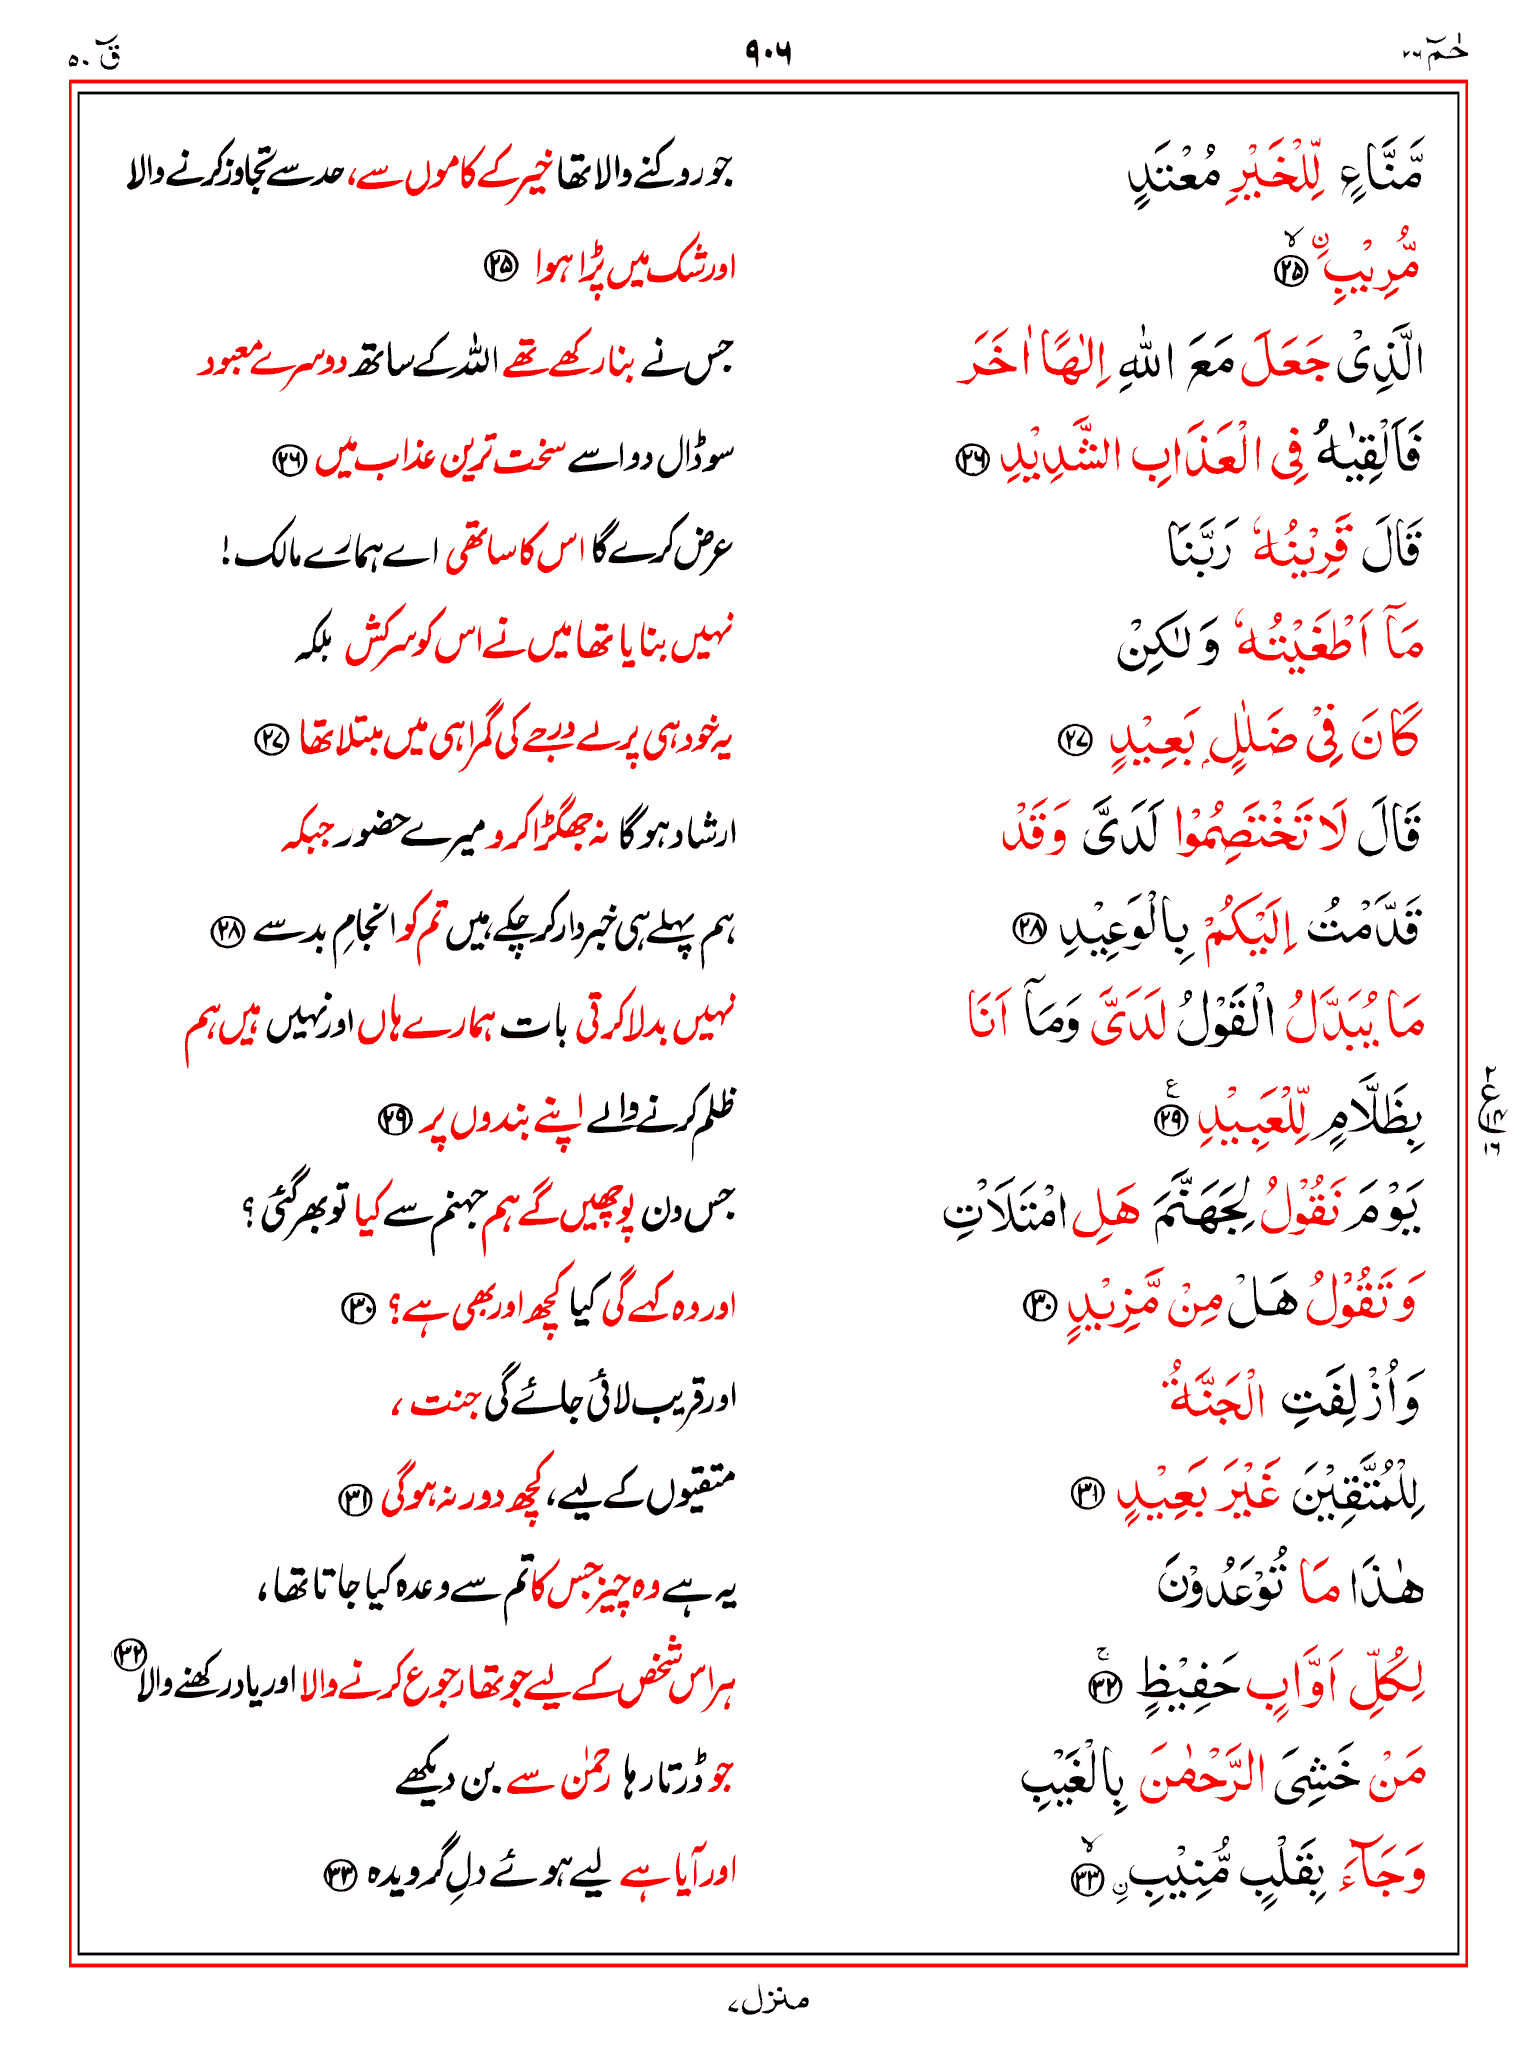 حٰمٓ ۲۶ ۹۰۶ قٓ ۵۰
مَّنَّاعٍ لِّلْخَيْرِ مُعْتَدٍ جو روکنے والا تھا خیر کے کاموں سے، حد سے تجاوز کرنے والا
مُّرِيْبِ ۣۙ ﴿۲۵﴾ اور شک میں پڑا ہوا ﴿۲۵﴾
الَّذِىْ جَعَلَ مَعَ اللّٰهِ اِلٰهًا اٰخَرَ جس نے بنا رکھے تھے اللہ کے ساتھ دوسرے معبود
فَاَلْقِيٰهُ فِى الْعَذَابِ الشَّدِيْدِ ﴿۲۶﴾ سو ڈال دو اسے سخت ترین عذاب میں ﴿۲۶﴾
قَالَ قَرِيْنُهٗ رَبَّنَا عرض کرے گا اس کا ساتھی اے ہمارے مالک!
مَاۤ اَطْغَيْتُهٗ وَلٰكِنْ نہیں بنایا تھا میں نے اس کو سرکش بلکہ
كَانَ فِىْ ضَلٰلٍۭ بَعِيْدٍ ﴿۲۷﴾ یہ خود ہی پرلے درجے کی گمراہی میں مبتلا تھا ﴿۲۷﴾
قَالَ لَا تَخْتَصِمُوْا لَدَىَّ وَقَدْ ارشاد ہوگا نہ جھگڑا کرو میرے حضور جبکہ
قَدَّمْتُ اِلَيْكُمْ بِالْوَعِيْدِ ﴿۲۸﴾ ہم پہلے ہی خبردار کر چکے ہیں تم کو انجامِ بد سے ﴿۲۸﴾
مَا يُبَدَّلُ الْقَوْلُ لَدَىَّ وَمَاۤ اَنَا نہیں بدلا کرتی بات ہمارے ہاں اور نہیں ہیں ہم
بِظَلَّامٍ لِّلْعَبِيْدِ ﴿۲۹﴾ ع ظلم کرنے والے اپنے بندوں پر ﴿۲۹﴾
۲ ع ۱۴ ۱۶
يَوْمَ نَقُوْلُ لِجَهَنَّمَ هَلِ امْتَلَاْتِ جس دن پوچھیں گے ہم جہنم سے کیا تو بھر گئی؟
وَتَقُوْلُ هَلْ مِنْ مَّزِيْدٍ ﴿۳۰﴾ اور وہ کہے گی کیا کچھ اور بھی ہے؟ ﴿۳۰﴾
وَاُزْلِفَتِ الْجَنَّةُ اور قریب لائی جائے گی جنت،
لِلْمُتَّقِيْنَ غَيْرَ بَعِيْدٍ ﴿۳۱﴾ متقیوں کے لیے، کچھ دور نہ ہوگی ﴿۳۱﴾
هٰذَا مَا تُوْعَدُوْنَ یہ ہے وہ چیز جس کا تم سے وعدہ کیا جاتا تھا،
لِكُلِّ اَوَّابٍ حَفِيْظٍ ۚ ﴿۳۲﴾ ہر اس شخص کے لیے جو تھا رجوع کرنے والا اور یاد رکھنے والا ﴿۳۲﴾
مَنْ خَشِىَ الرَّحْمٰنَ بِالْغَيْبِ جو ڈرتا رہا رحمٰن سے بن دیکھے
وَجَآءَ بِقَلْبٍ مُّنِيْبِ ۣۙ ﴿۳۳﴾ اور آیا ہے لیے ہوئے دلِ گرویدہ ﴿۳۳﴾
منزل ۷